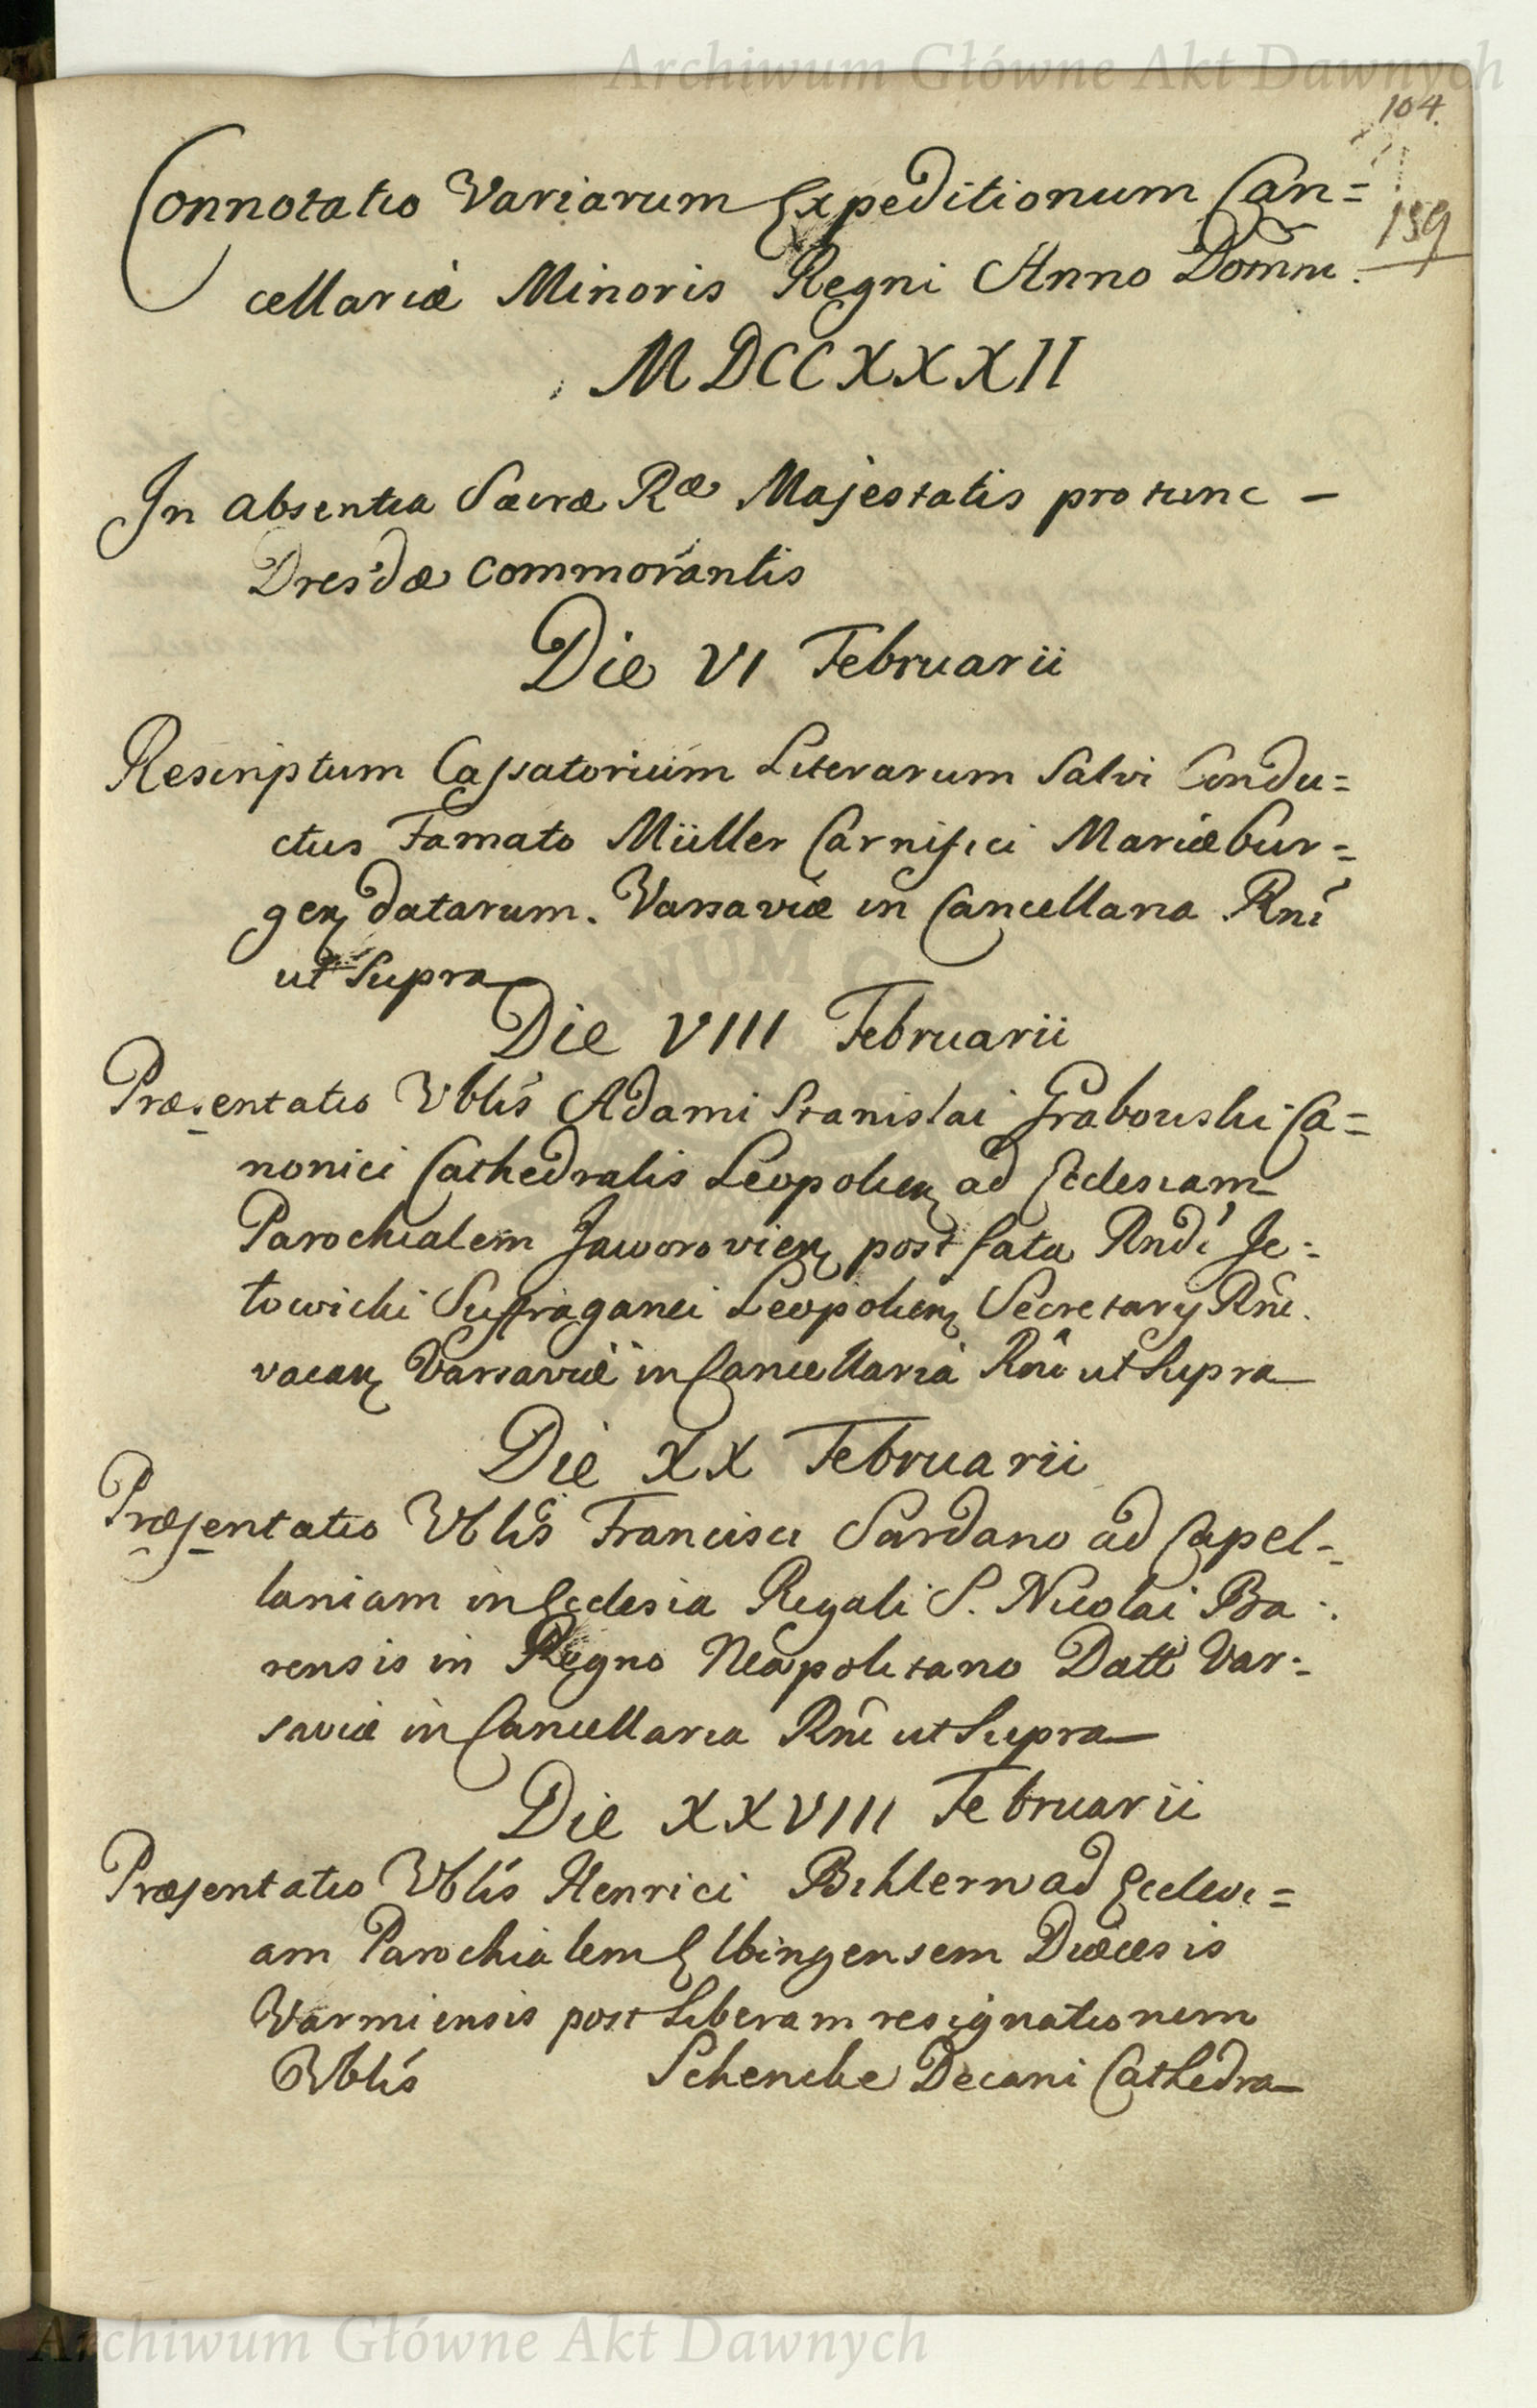 Archiwum Główne Akt Dawnych
104.
159
Connotatio Variarum Expeditionum Can=
cellariæ Minoris Regni Anno Domni.
MDCCXXXII
In absentia Sacræ Ræ Majestatis pro tunc –
Dresdæ commorantis
Die VI Februarii
Rescriptum Cassatorium Literarum Salvi Condu=
ctus Famato Müller Carnifici Mariæbur=
gen datarum. Varsaviæ in Cancellaria Rni
ut Supra
Die VIII Februarii
Præsentatio Vblis Adami Stanislai Grabowski Ca=
nonici Cathedralis Leopolien ad Ecclesiam
Parochialem Jaworovien post fata Rndi Je=
towicki Suffraganei Leopolien Secretary Rni.
vacan Varsaviæ in Cancellaria Rni ut Supra
Die XX Februarii
Præsentatio Vblis Francisci Sardano ad Capel=
laniam in Ecclesia Regali S. Nicolai Ba=
rensis in Regno Neapolitano Datt Var=
saviæ in Cancellaria Rni ut Supra
Die XXVIII Februarii
Præsentatio Vblis Henrici Bihlern ad Ecclesi=
am Parochialem Elbingensem Diæcesis
Varmiensis post Liberam resignationem
Vblis Schencke Decani Cathedra
Archiwum Główne Akt Dawnych